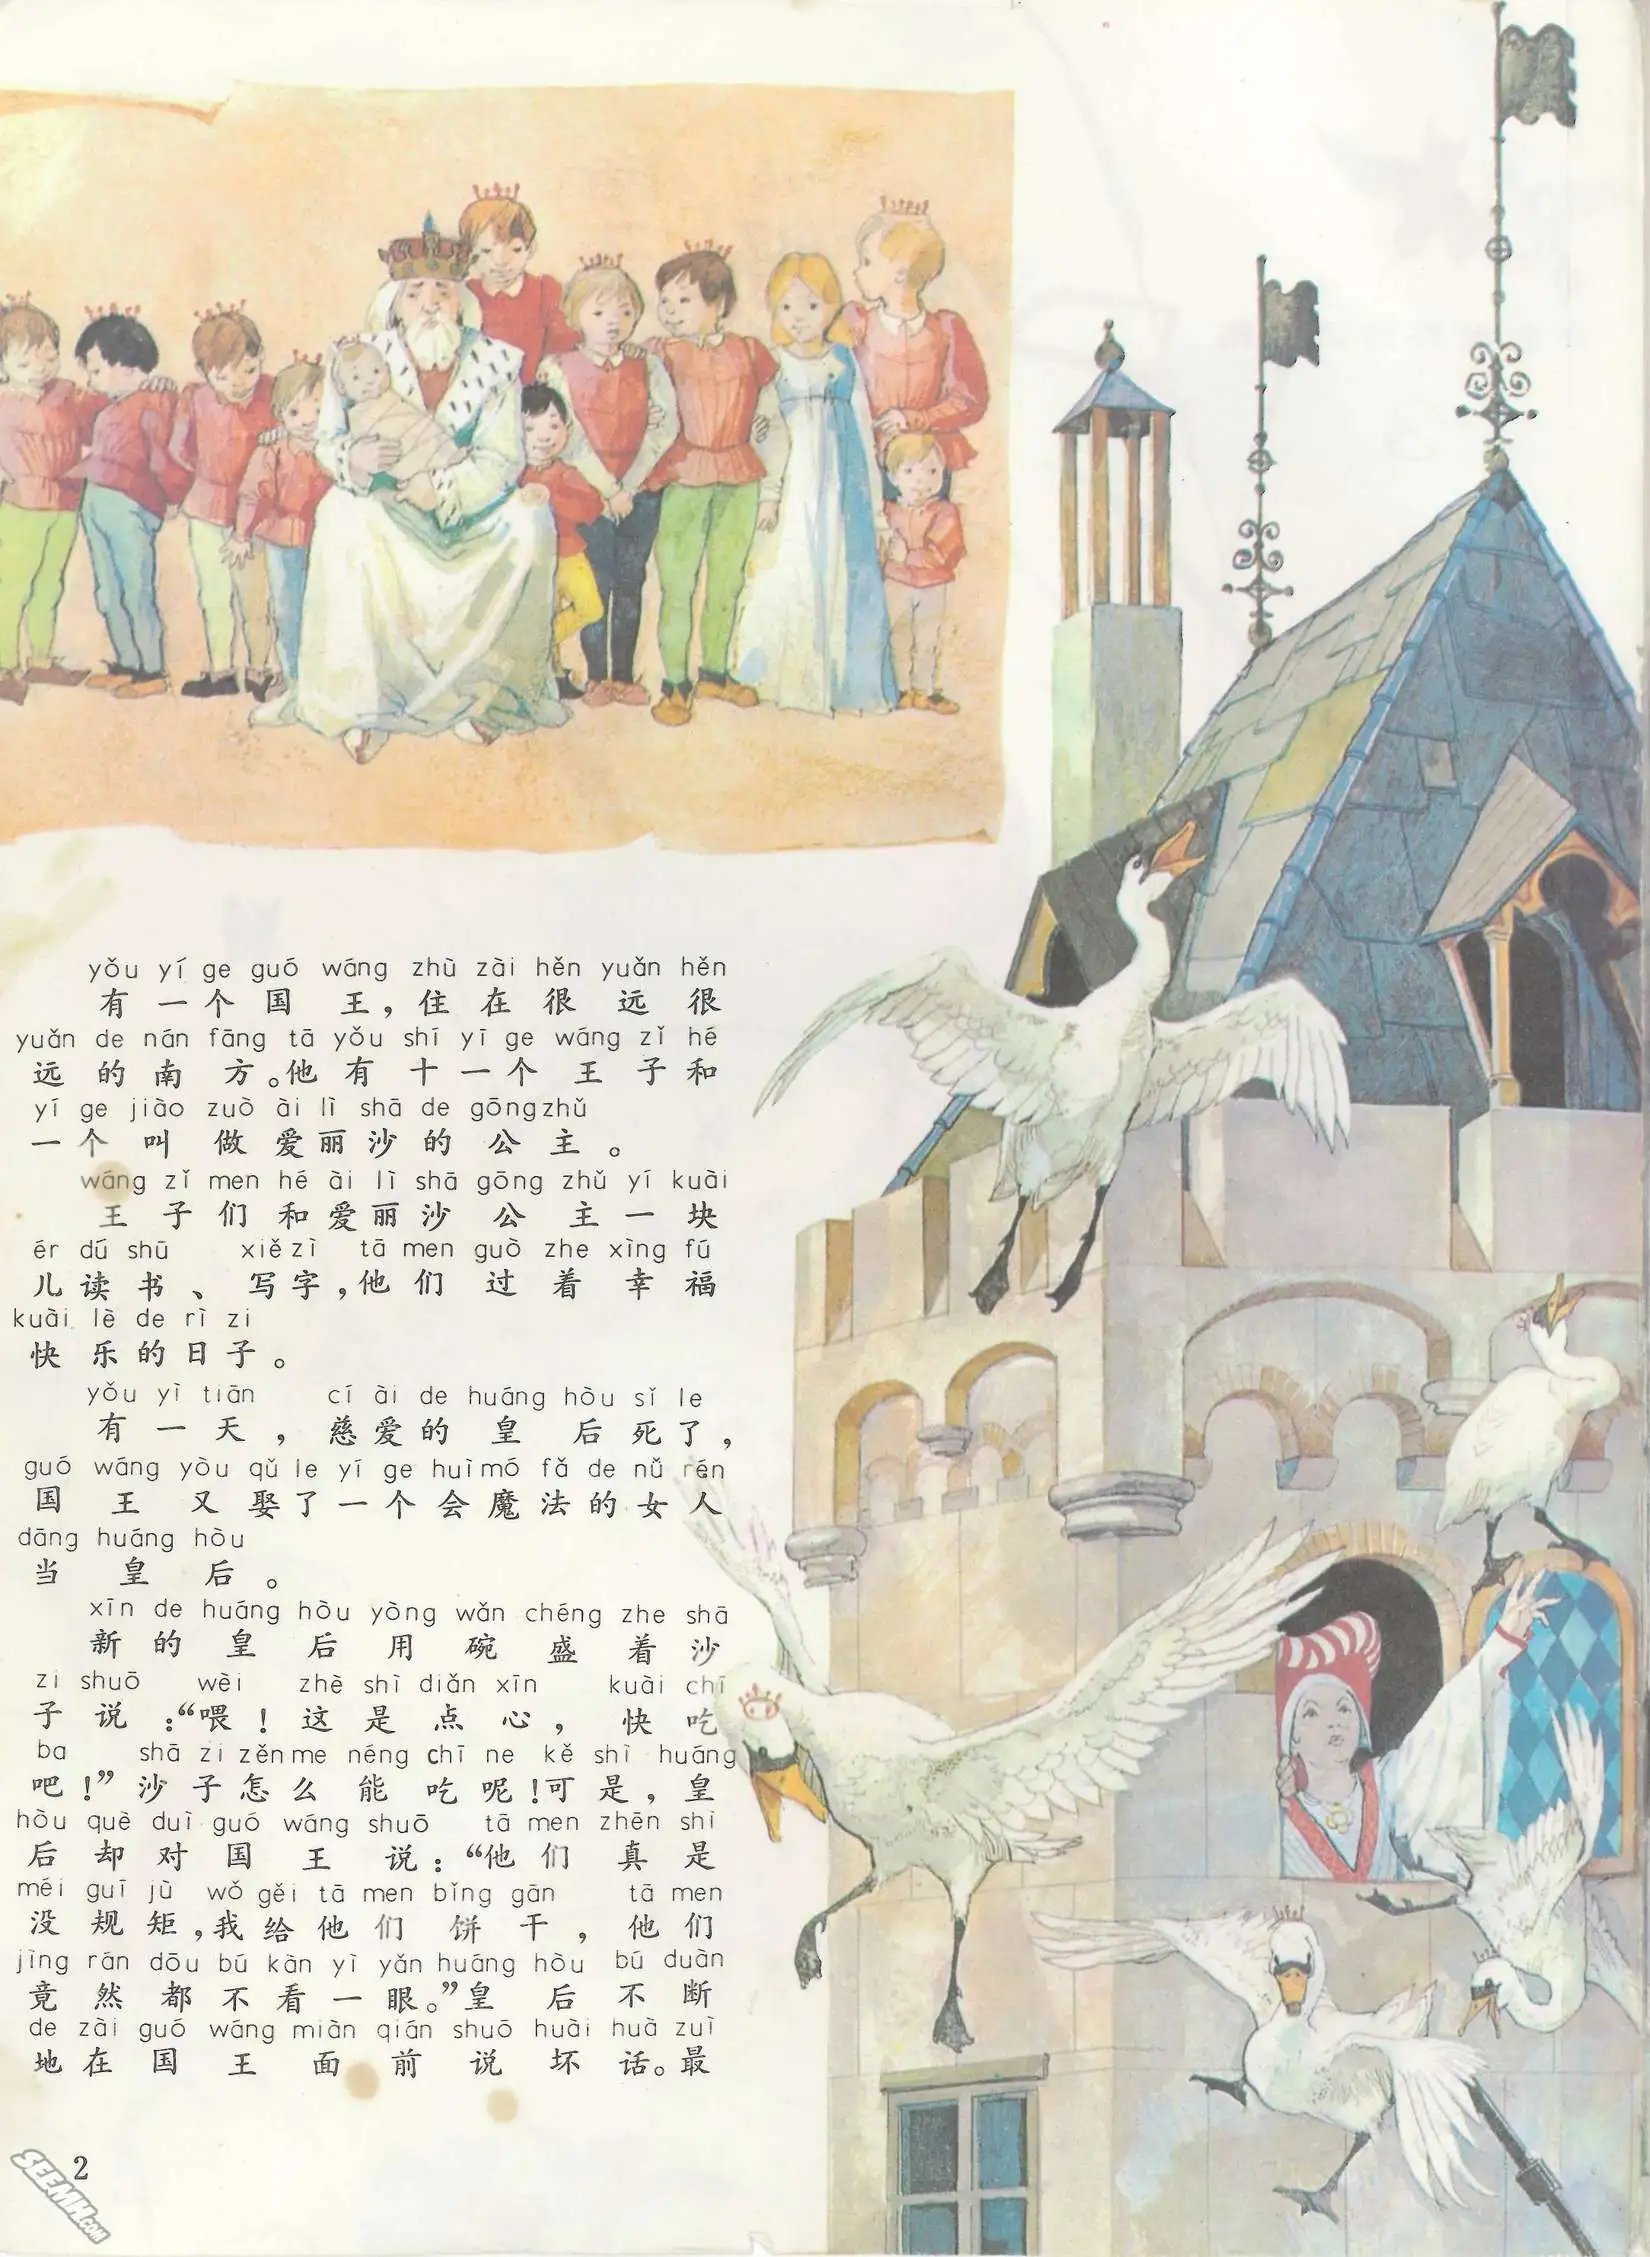 yǒu yí ge guó wáng zhù zài hěn yuǎn hěn
有一个国王，住在很远很
yuǎn de nán fāng tā yǒu shí yī ge wáng zǐ hé
远的南方。他有十一个王子和
yí ge jiào zuò ài lì shā de gōngzhǔ
一个叫做爱丽沙的公主。
wáng zǐ men hé ài lì shā gōng zhǔ yí kuài
王子们和爱丽沙公主一块
ér dú shū xiězì tā men guò zhe xìng fú
儿读书、写字，他们过着幸福
kuài lè de rì zi
快乐的日子。
yǒu yì tiān cí ài de huáng hòu sǐ le
有一天，慈爱的皇后死了，
guó wáng yòu qǔ le yí ge huìmó fǎ de nǚ rén
国王又娶了一个会魔法的女人
dāng huáng hòu
当皇后。
xīn de huáng hòu yòng wǎn chéng zhe shā
新的皇后用碗盛着沙
zi shuō wèi zhè shì diǎn xīn kuài chī
子说：“喂！这是点心，快吃
ba shā zi zěnme néng chī ne kě shì huáng
吧！”沙子怎么能吃呢！可是，皇
hòu què duì guó wáng shuō tā men zhēn shì
后却对国王说：“他们真是
méi guī jù wǒ gěi tā men bǐng gān tā men
没规矩，我给他们饼干，他们
jìng rán dōu bú kàn yì yǎn huáng hòu bú duàn
竟然都不看一眼。”皇后不断
de zài guó wáng miàn qián shuō huài huà zuì
地在国王面前说坏话。最
2
SEEMH.COM